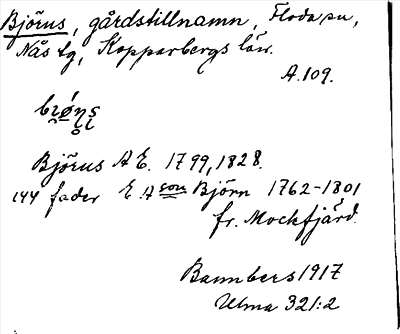 Björus, gårdstillnamn, Floda sn,
Nås tg, Kopparbergs län.
A. 109.
Björus A E. 1799, 1828.
fader E. A son Björn 1762-1801
fr. Mockfjärd.
Bannbers 1917
Ulma 321:2